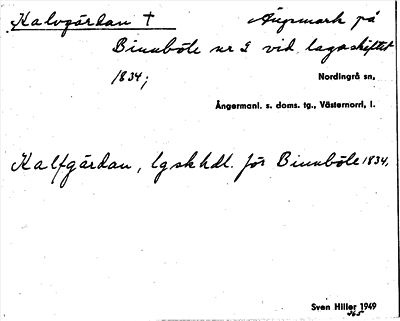 Kalvgårdan † Ängsmark på
Binnböle nr 2 vid lagaskiftet
1834;
Nordingrå sn,
Ångermanl. s. doms. tg., Västernorrl, l.
Kalfgårdan, lgskhdl. för Binnböle 1834,
Sven Hiller 1949